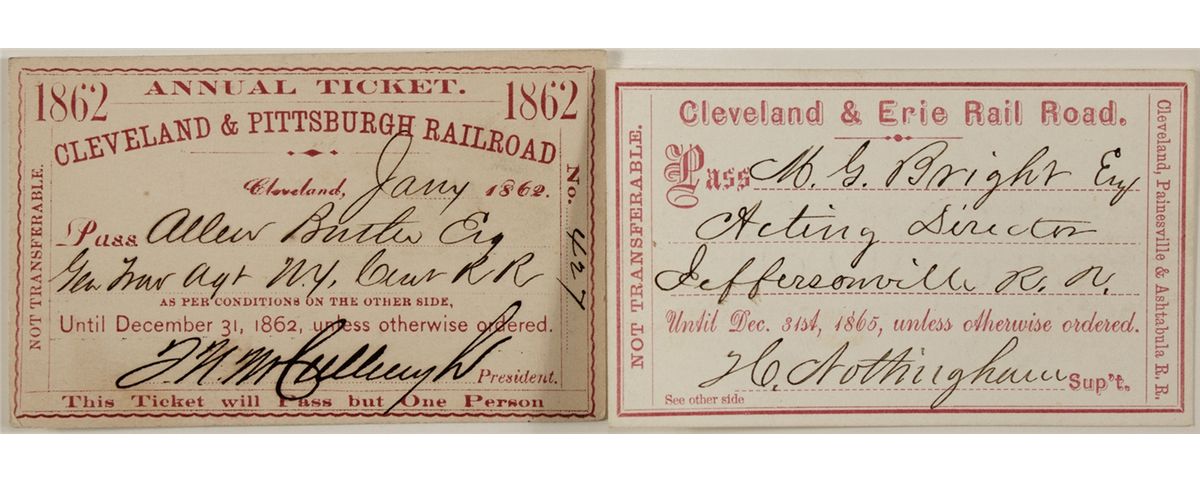 1862 ANNUAL TICKET. 1862
CLEVELAND & PITTSBURGH RAILROAD
Cleveland, Jany 1862.
Pass Allen Butler Esq
Gen Trav Agt N.Y. Cent R R
AS PER CONDITIONS ON THE OTHER SIDE,
Until December 31, 1862, unless otherwise ordered.
J. N. McCullough President.
This Ticket will Pass but One Person
NOT TRANSFERABLE.
No. 427
Cleveland & Erie Rail Road.
Pass M. G. Bright Esq
Acting Director
Jeffersonville R. R.
Until Dec. 31st, 1865, unless otherwise ordered.
H. Nottingham Sup't.
See other side
NOT TRANSFERABLE.
Cleveland, Painesville & Ashtabula R. R.